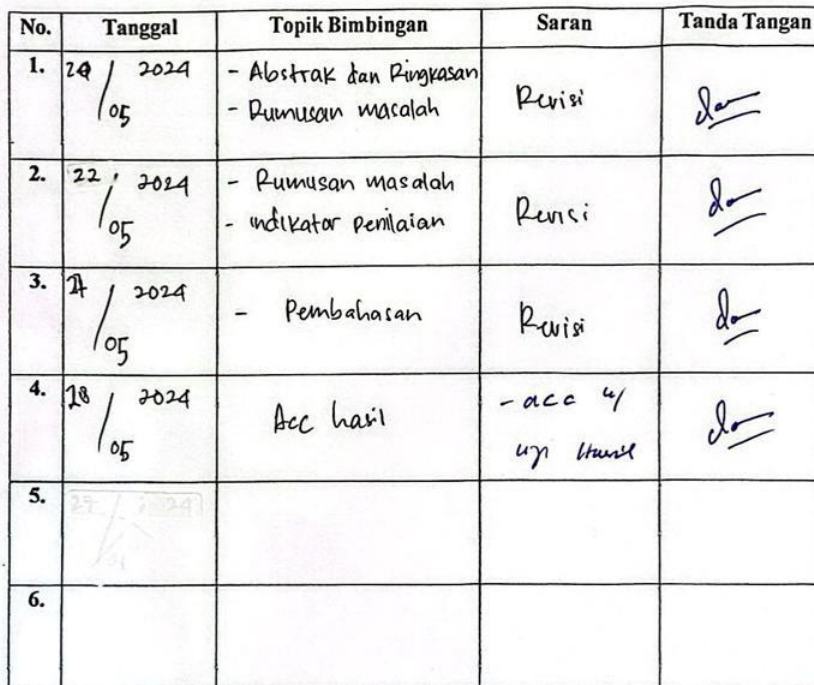 No. Tanggal Topik Bimbingan Saran Tanda Tangan
1. / 2024 - Abstrak dan Ringkasan
05 - Rumusan masalah Revisi
2. 22 / 2024 - Rumusan masalah
05 - indikator penilaian Revisi
3. / 2024 - Pembahasan Revisi
05
4. 28 / 2024 Acc hasil - acc u/
05 uji Hasil
5.
6.